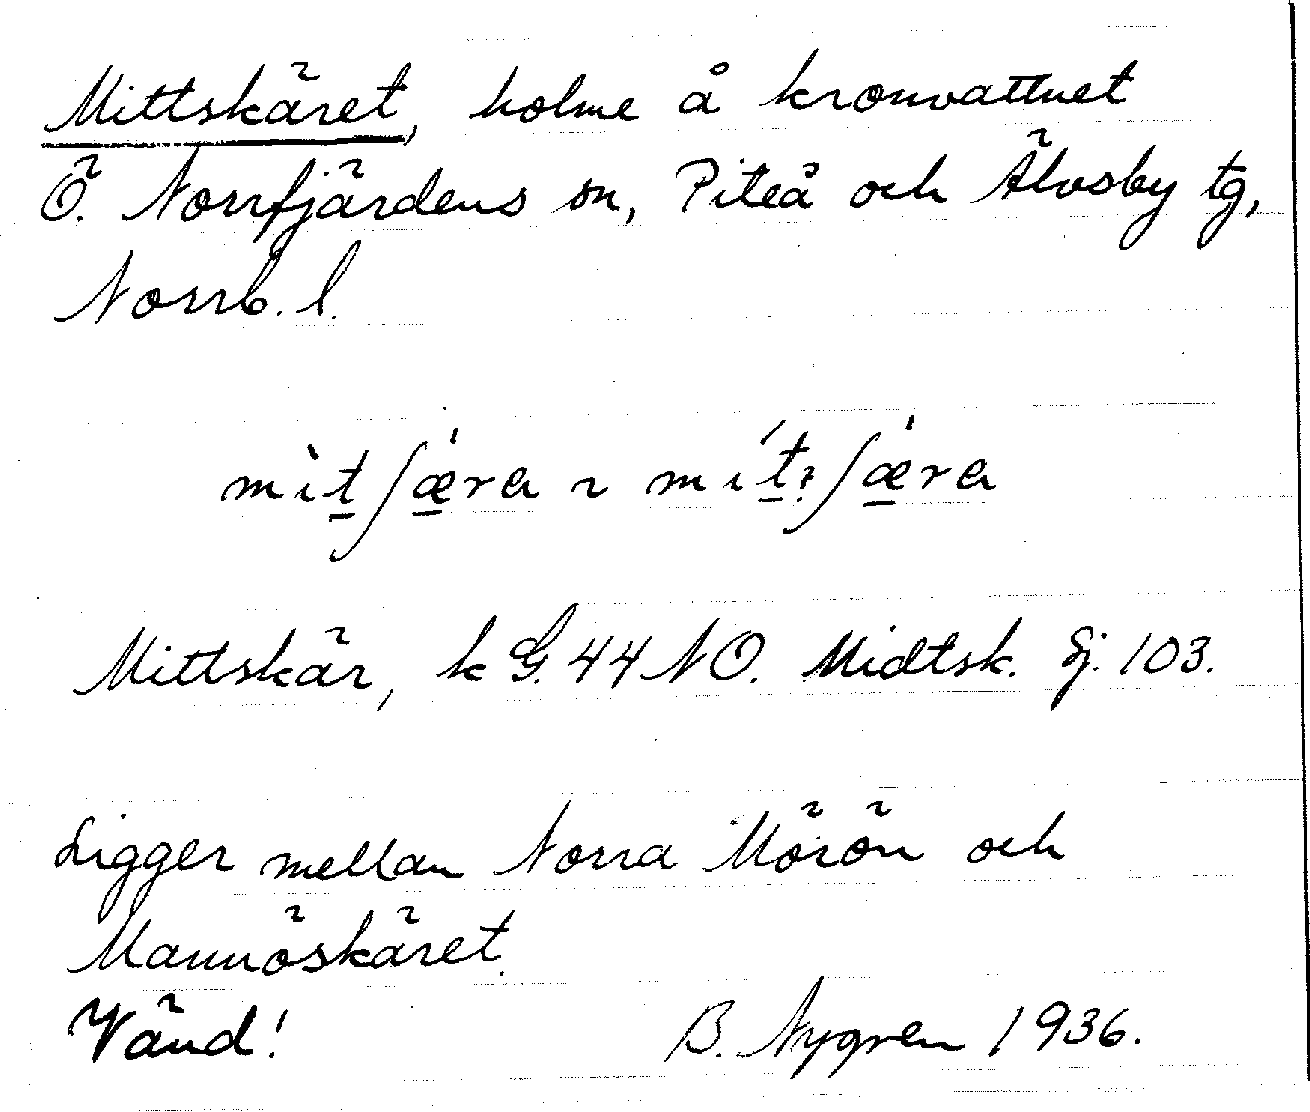 Mittskäret, holme å kronvattnet
Ö. Norrfjärdens sn, Piteå och Älvsby tg,
Norrb. l.
mìt̠ʃæ̠̀ra ~ mít̠ʃæ̠̀ra
Mittskär, k G. 44 NO. Midtsk. Sj. 103.
Ligger mellan Norra Mörön och
Mannöskäret.
Vänd! B. Nygren 1936.